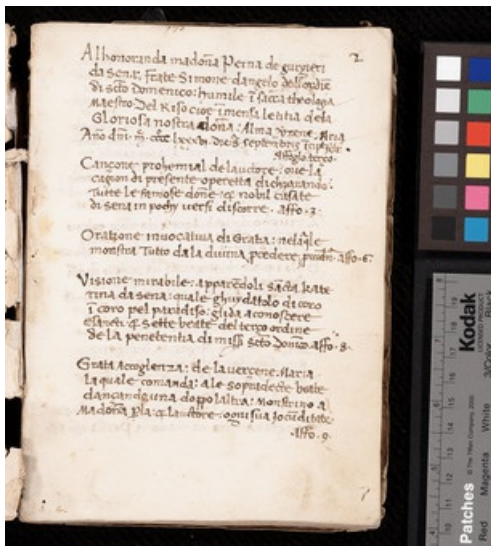 2
Al honoranda madoña Perna de
da sena: frate Simone dangelo dellordie
di scto Domenico: humile ĩ sacra theologia
Maestro: Del Riso cioe ĩmensa letitia dela
Gloriosa nostra dona: Alma Maria
Ano dñi
affoglo terço
Cançone prohemial delauctore: oue la
cagion di presente operetta dichiarando:
Tutte le famose done: & nobil casate
di sena in pochy uersi discorre. affo. 3.
Oratione inuocatiua di Grata: nela
monstra Tutto dala diuina affo. 6.
Visione mirabile: apparedoli sacta kate
rina da sena: quale ghuydatolo di coro
ĩ coro pel paradiso: gli da a conoscere
& sette beate del terço ordine
de la penetentia di miss scto affo. 8.
Grata accoglença: de la uergene Maria
laquale comanda: a le sopradecte beate
dançando una doppo laltra: Monstrino a
Madoña & lauctore: ogni sua iocundita
affo. 9.
Kodak
LICENSED PRODUCT
Black
3/Color
White
Magenta
Red
Patches
© The Tiffen Company, 2000